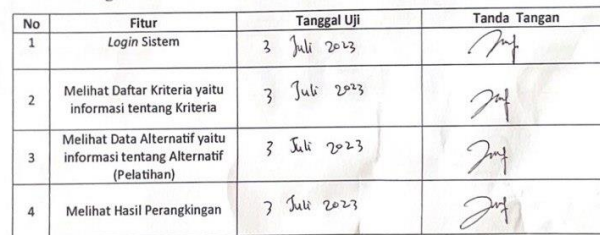 No Fitur Tanggal Uji Tanda Tangan
1 Login Sistem 3 Juli 2023
2 Melihat Daftar Kriteria yaitu informasi tentang Kriteria 3 Juli 2023
3 Melihat Data Alternatif yaitu informasi tentang Alternatif (Pelatihan) 3 Juli 2023
4 Melihat Hasil Perangkingan 3 Juli 2023